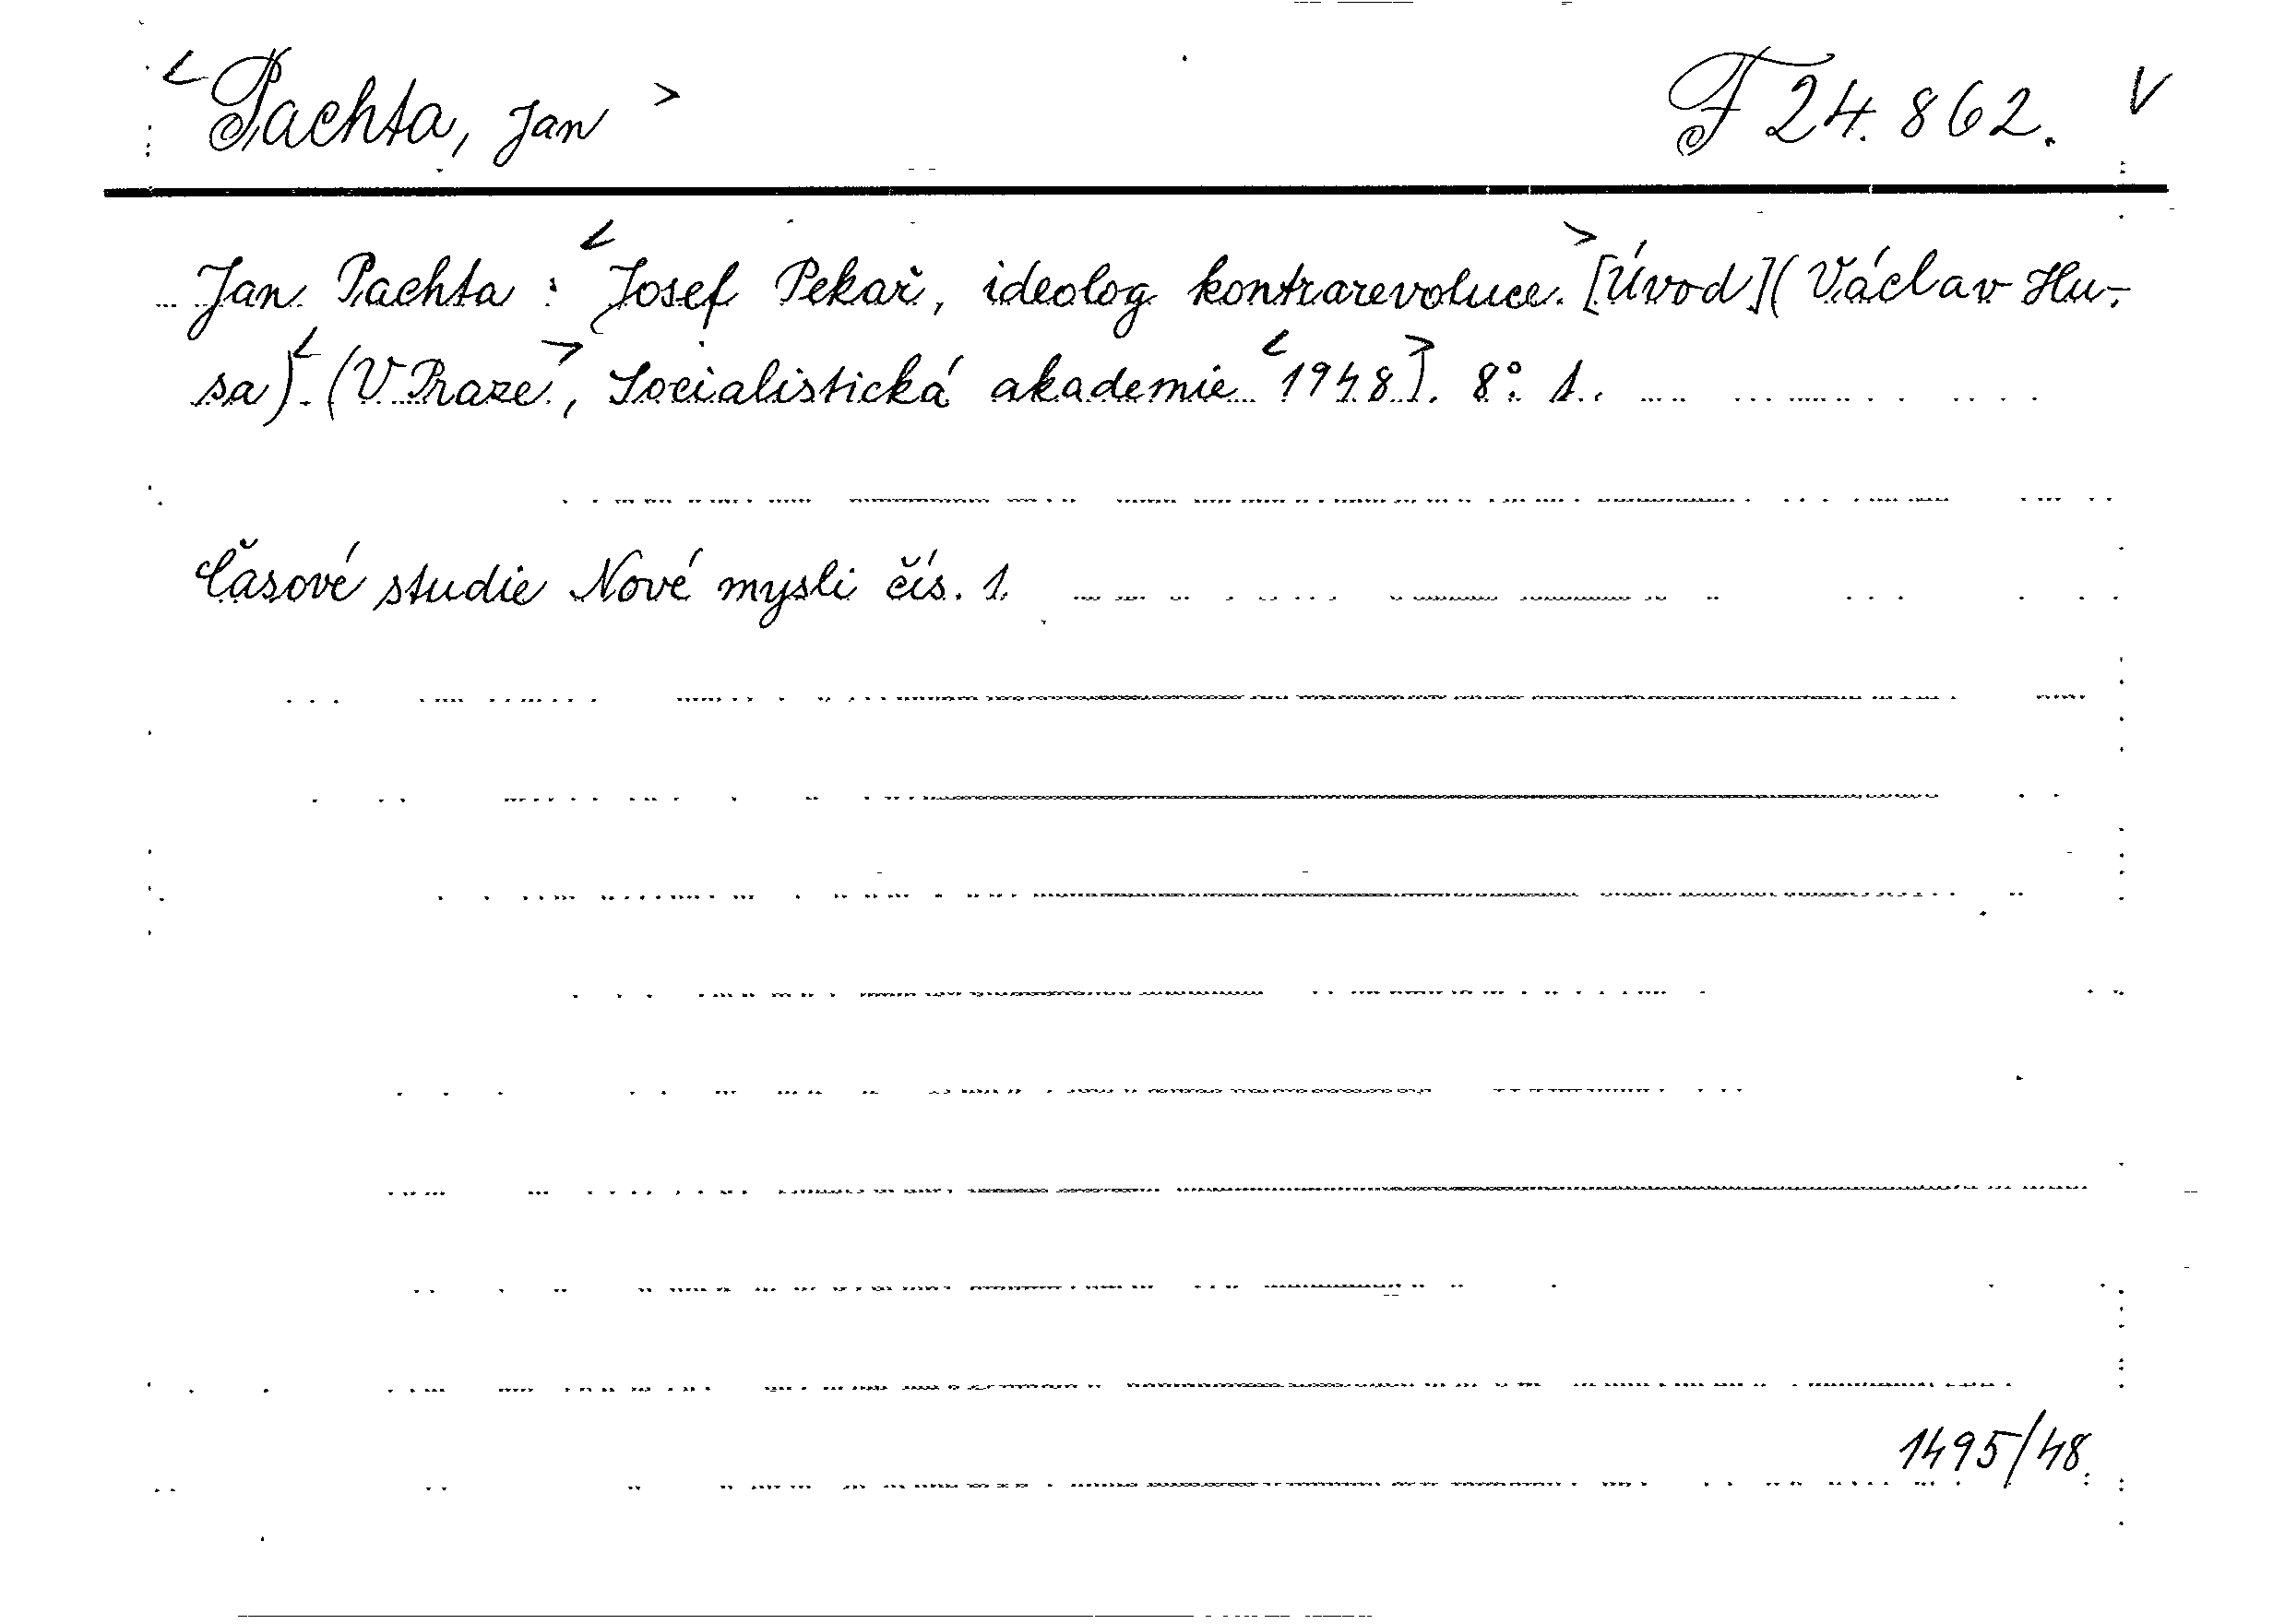 <Pachta, Jan> F 24.862. V
Jan Pachta : <Josef Pekař, ideolog kontrarevoluce.> [Úvod] (Václav Hu-
sa). <(V Praze>, Socialistická akademie <1948>). 8° 1.
Časové studie Nové mysli čís. 1.
1495/48.